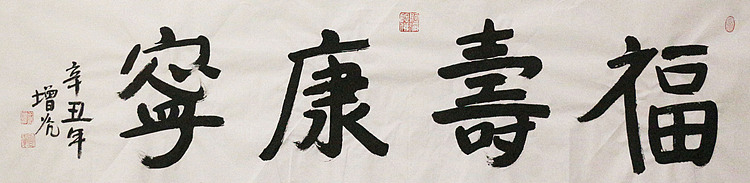 福壽康寧
辛丑年
增光